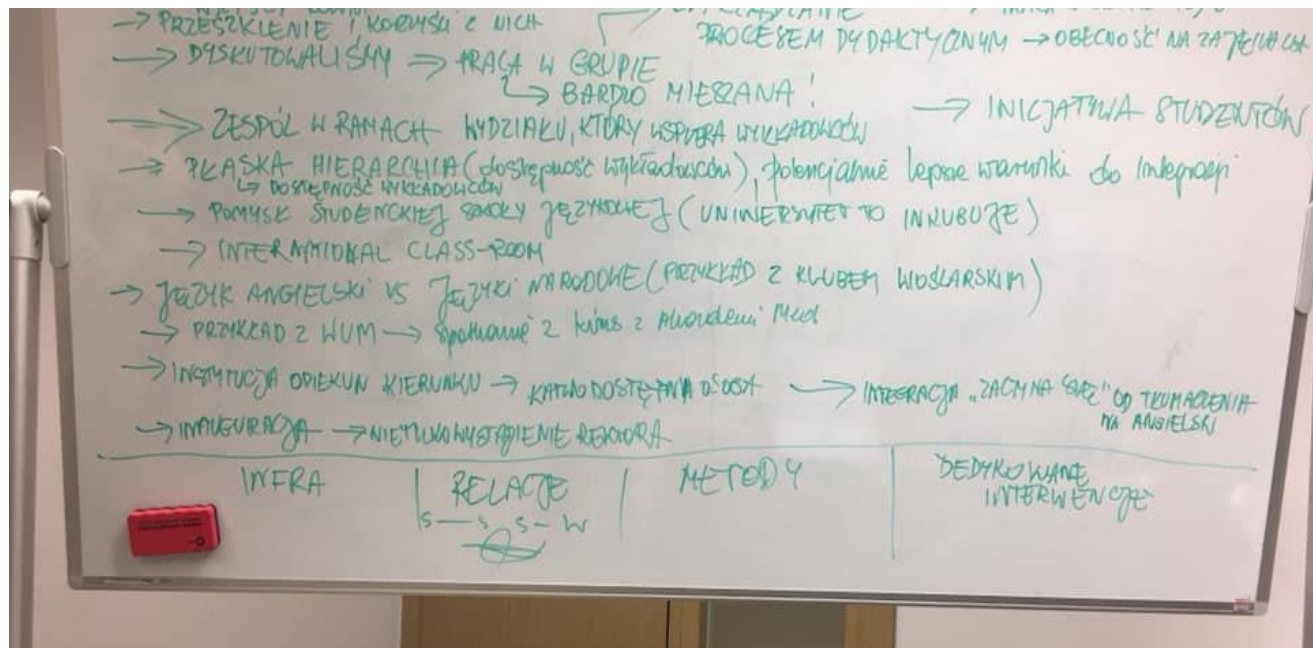 → PRZESZKLENIE I KORZYŚCI Z NICH
PROCESEM DYDAKTYCZNYM → OBECNOŚĆ NA ZAJĘCIACH
→ DYSKUTOWALIŚMY ⇒ PRACA W GRUPIE
↳ BARDZO MIESZANA!
→ INICJATYWA STUDENTÓW
→ ZESPÓŁ W RAMACH WYDZIAŁU, KTÓRY WSPIERA WYKŁADOWCÓW
→ PŁASKA HIERARCHIA (dostępność wykładowców), potencjalnie lepsze warunki do integracji
↳ DOSTĘPNOŚĆ WYKŁADOWCÓW
→ POMYSŁ STUDENCKIEJ SZKOŁY JĘZYKOWEJ (UNIWERSYTET TO INKUBUJE)
→ INTERNATIONAL CLASS-ROOM
→ JĘZYK ANGIELSKI VS JĘZYKI NARODOWE (PRZYKŁAD Z KLUBEM WIOŚLARSKIM)
→ PRZYKŁAD Z WUM → Spotkanie z kimś z Akademii Med
→ INSTYTUCJA OPIEKUN KIERUNKU → ŁATWO DOSTĘPNA OSOBA → INTEGRACJA „ZACZYNA SIĘ" OD TŁUMACZENIA
NA ANGIELSKI
→ INAUGURACJA → NIE TYLKO WYSTĄPIENIE REKTORA
INFRA
RELACJE
S — S S — W
METODY
DEDYKOWANE
INTERWENCJE